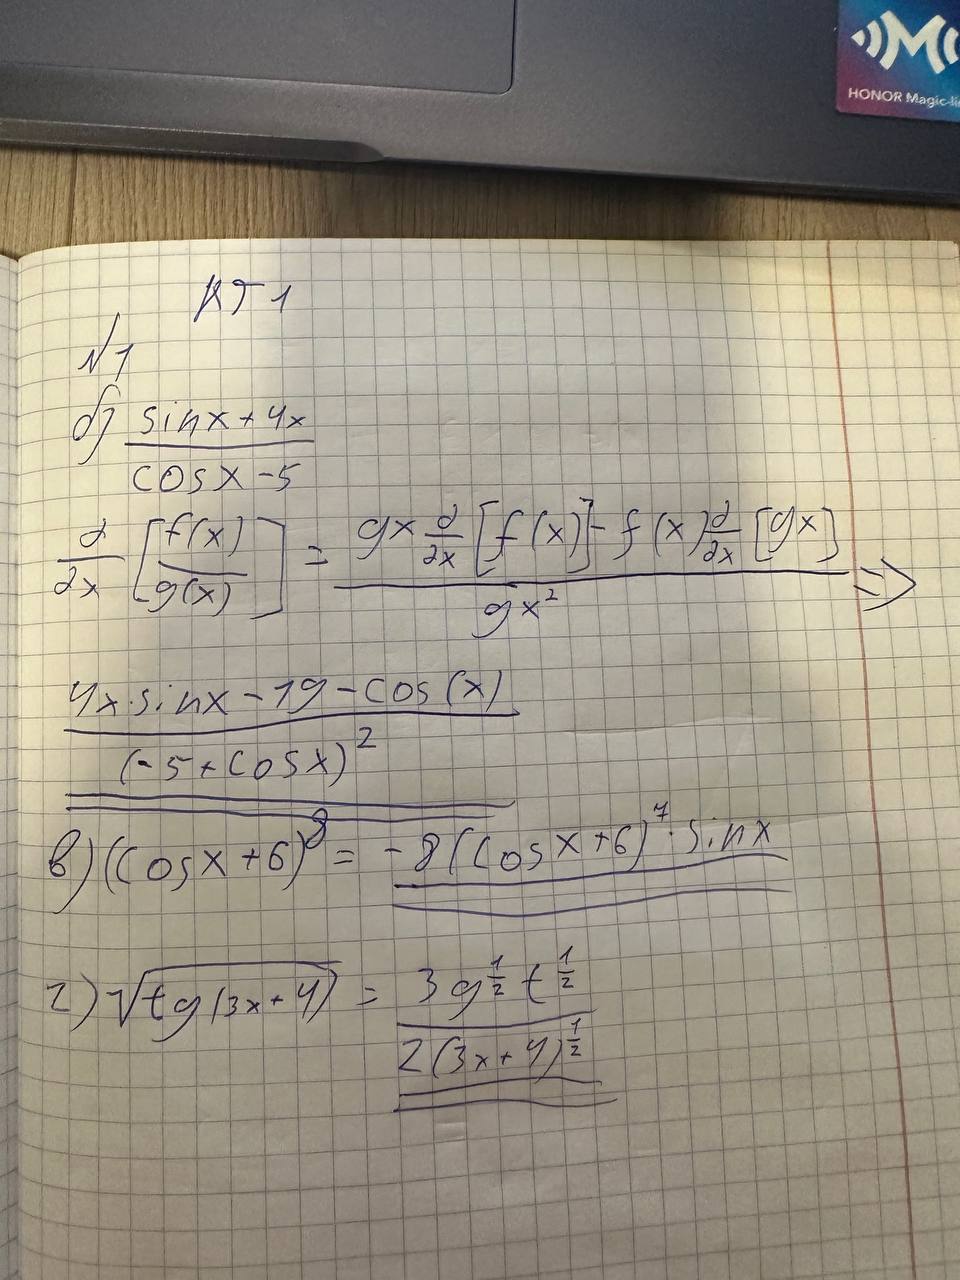 HONOR Magic-li
КТ 1
№1
б) (sinx + 4x)/(cosx - 5)
d/dx [f(x)/g(x)] = (gx d/dx [f(x)] - f(x) d/dx [gx])/(gx²) =>
(4x·sinx - 19 - cos(x))/((-5 + cosx)²)
в) (cosx + 6)⁸ = -8(cosx + 6)⁷·sinx
г) √(tg(3x + 4)) = (3g^(1/2) t^(1/2))/(2(3x + 4)^(1/2))